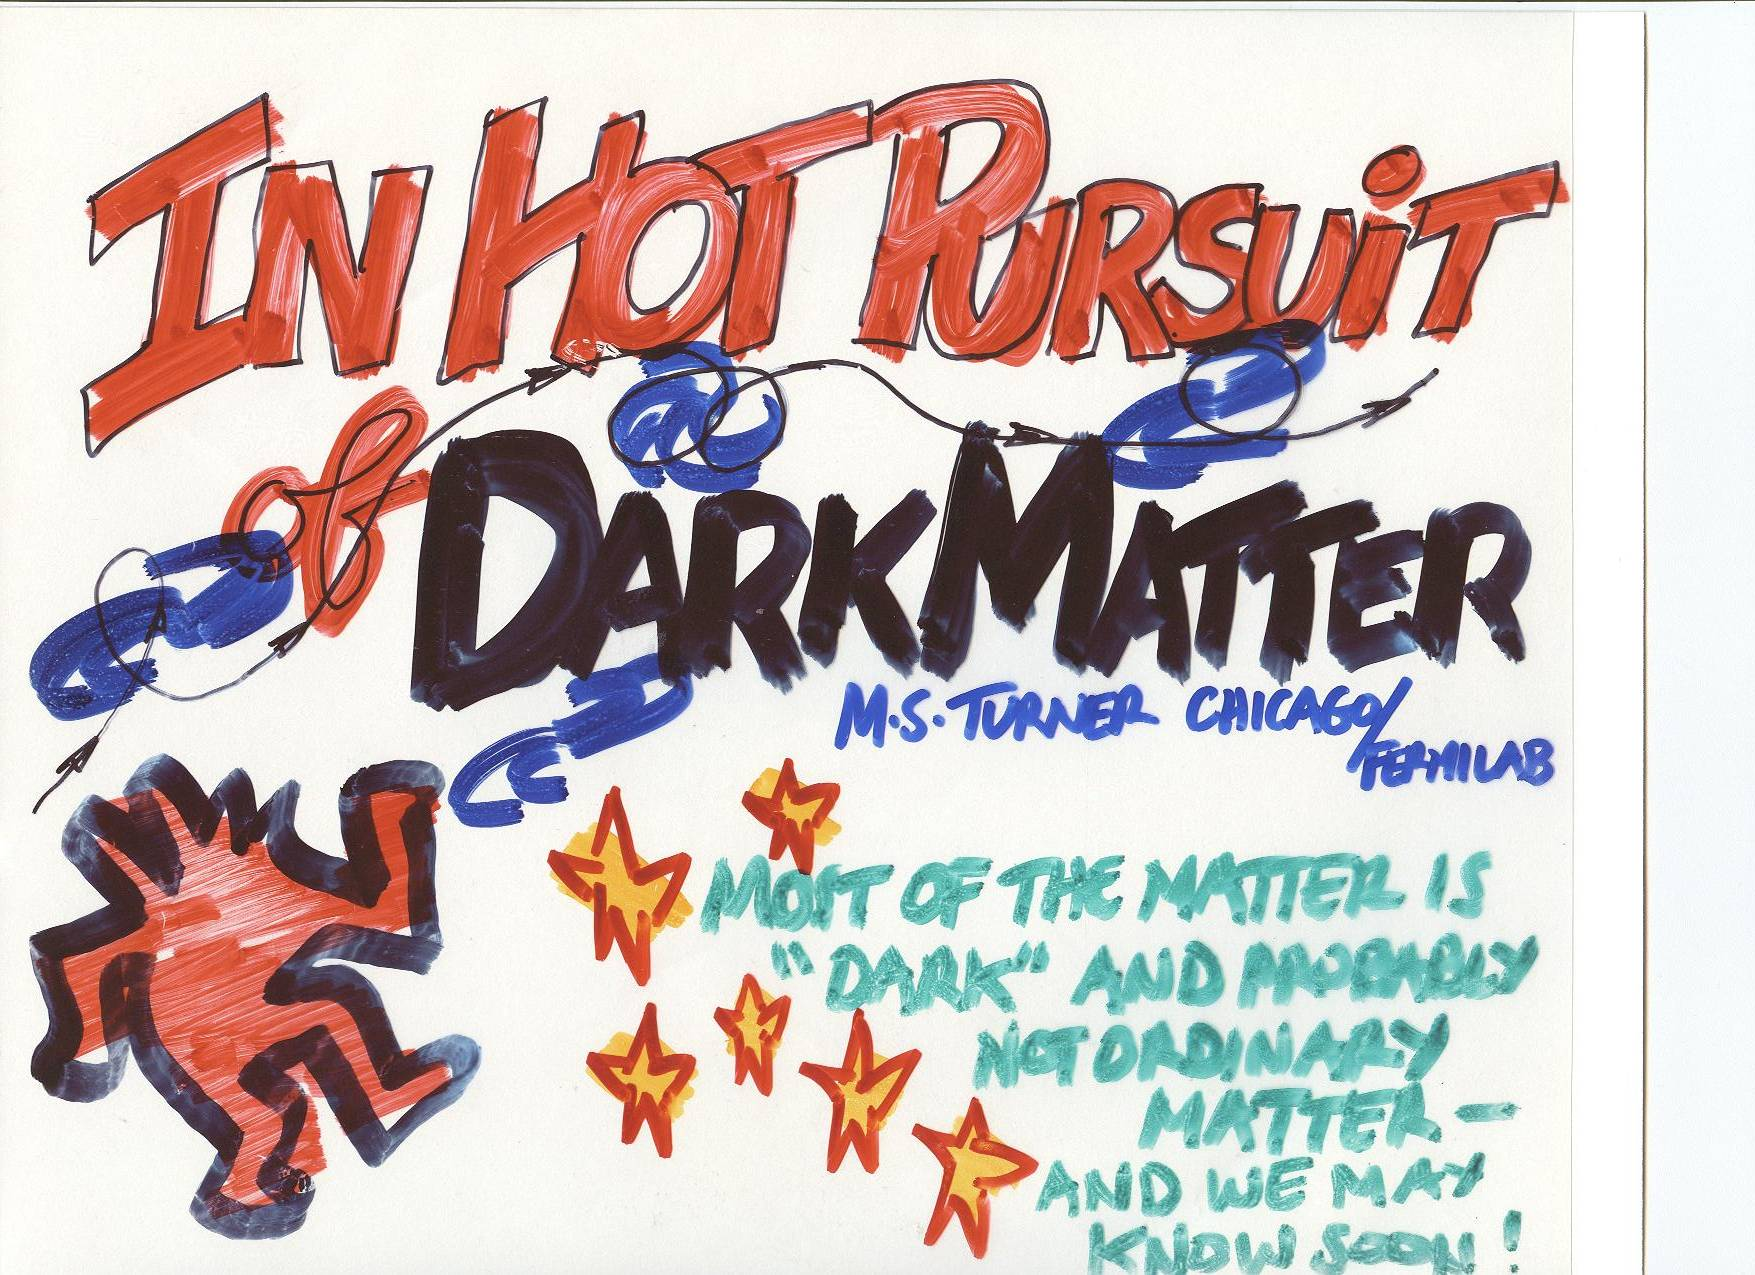 IN HOT PURSUiT
of DARK MATTER
M.S. TURNER CHICAGO/
FERMILAB
MOST OF THE MATTER IS
"DARK" AND PROBABLY
NOT ORDINARY
MATTER—
AND WE MAY
KNOW SOON!